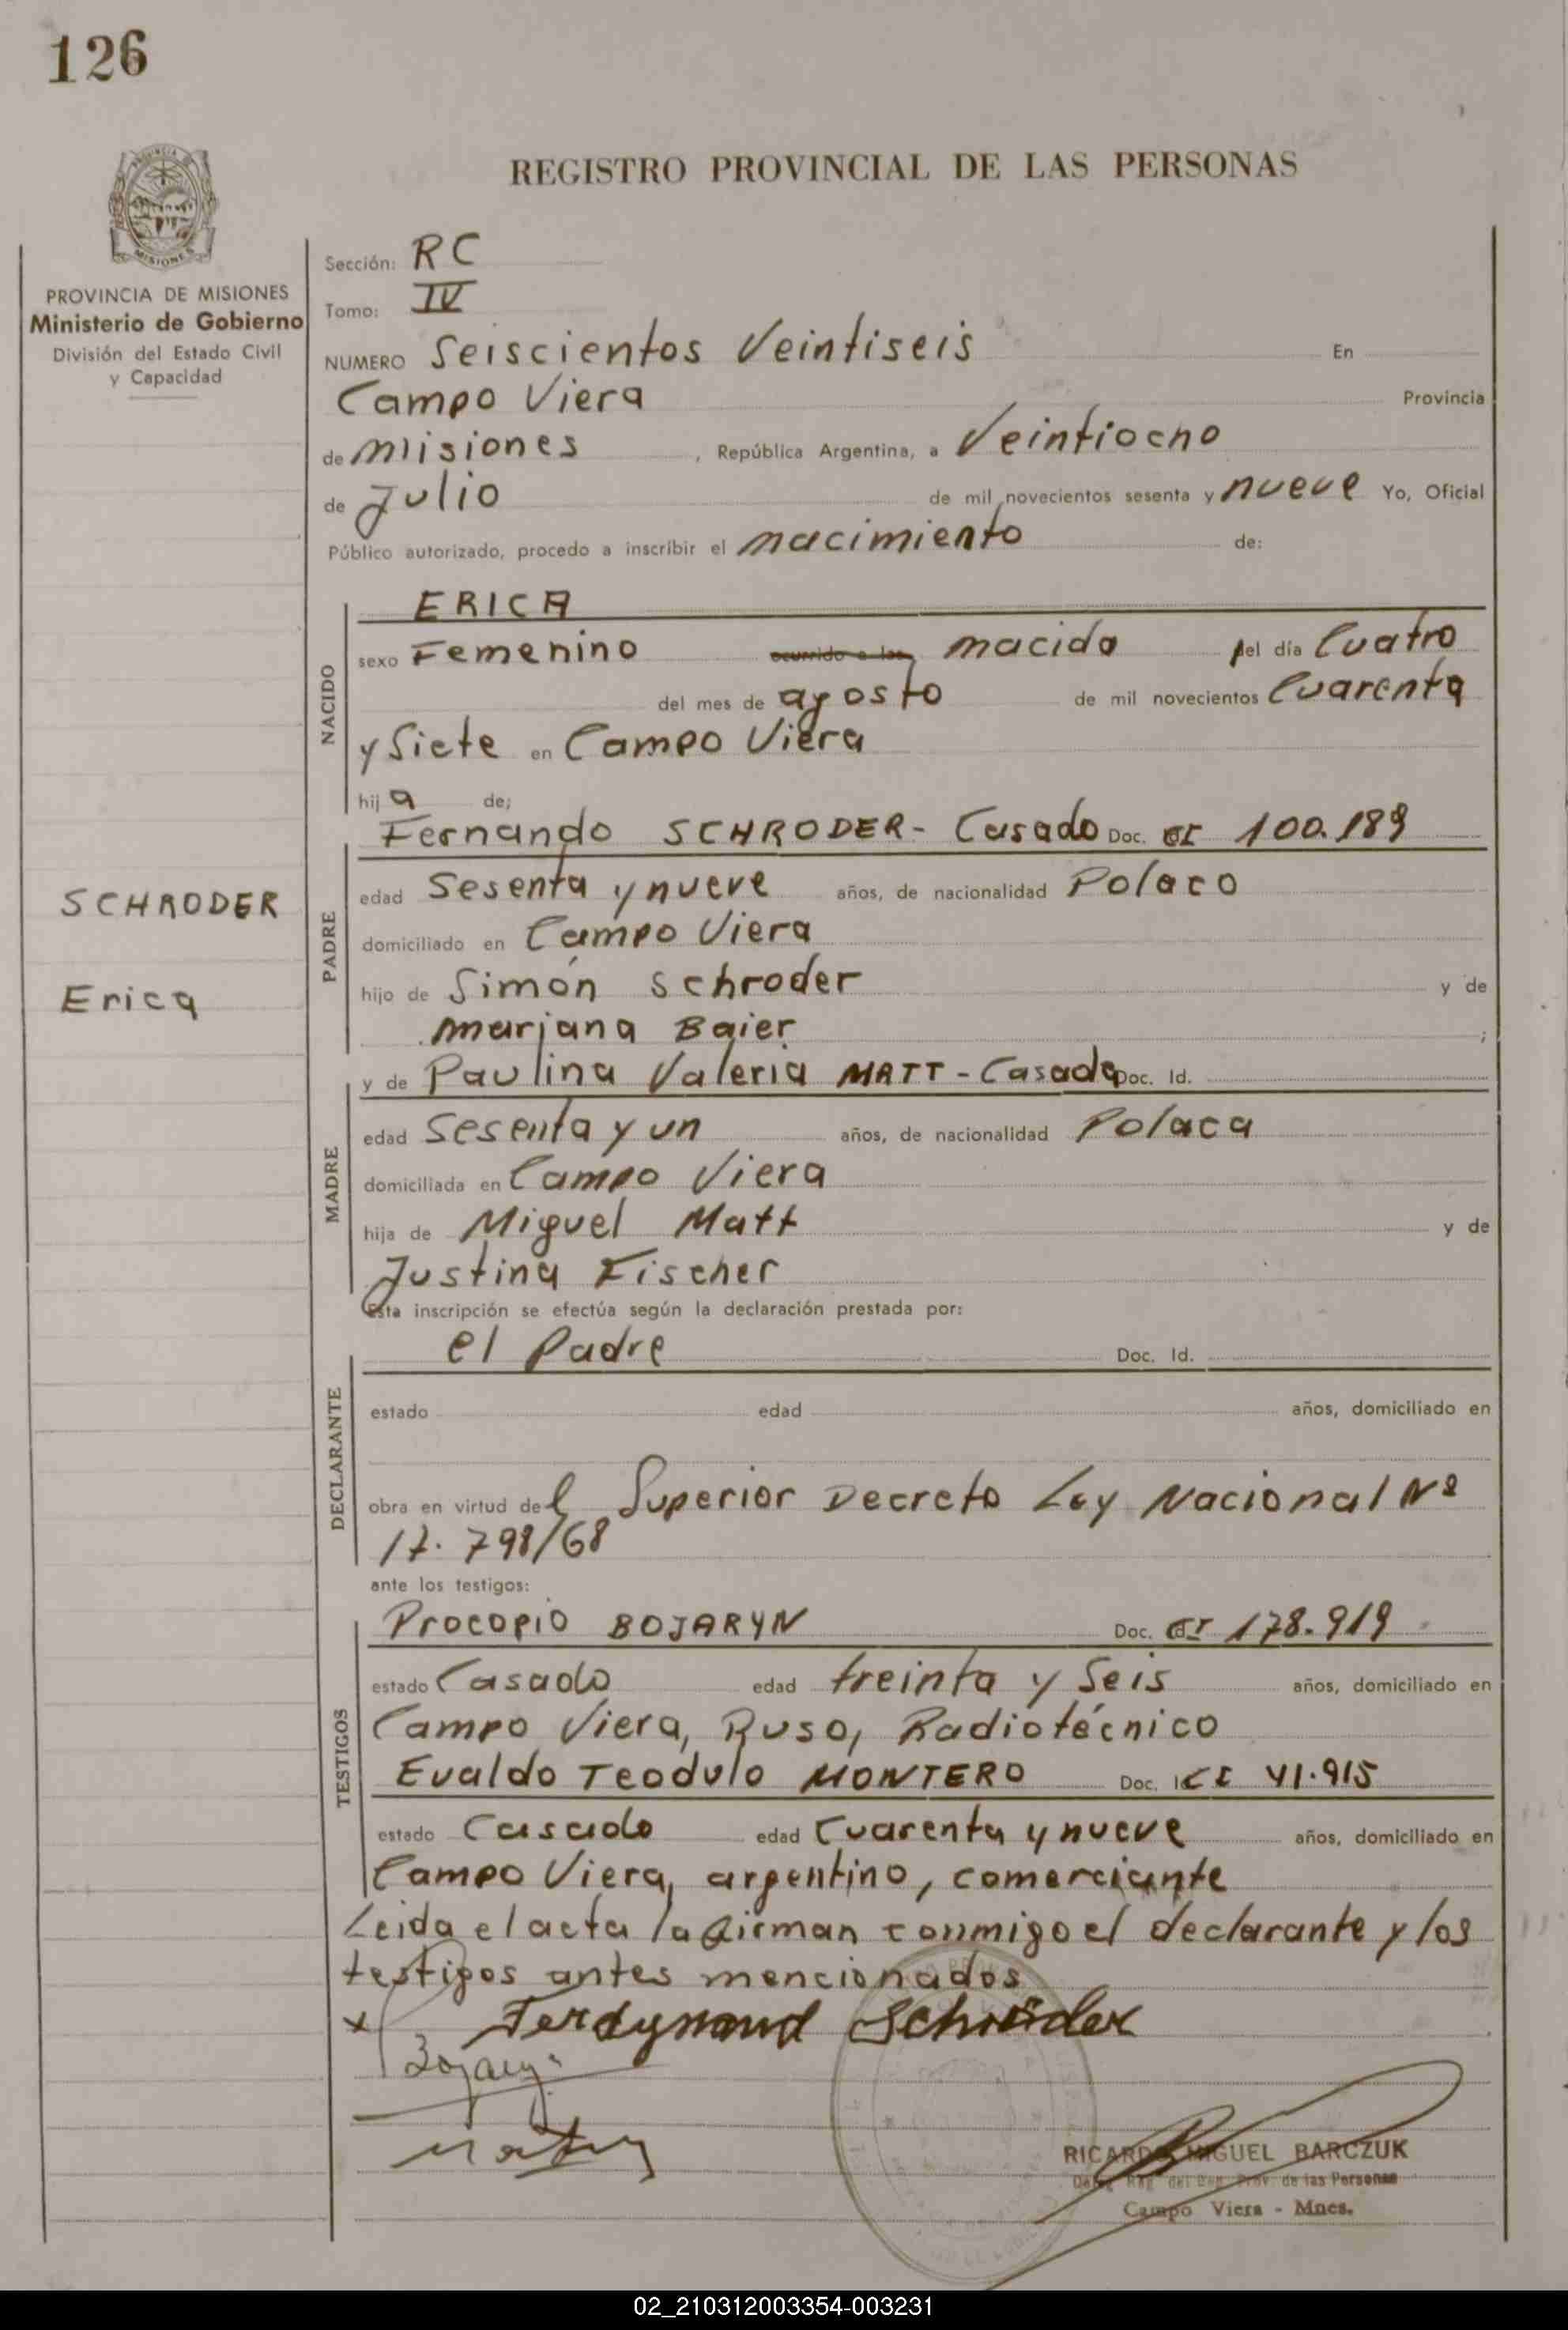 126
REGISTRO PROVINCIAL DE LAS PERSONAS
PROVINCIA DE MISIONES
Ministerio de Gobierno
División del Estado Civil
y Capacidad
Sección: RC
Tomo: IV
NUMERO Seiscientos Veintiseis En
Campo Viera Provincia
de Misiones , República Argentina, a Veintiocho
de Julio de mil novecientos sesenta y nueve Yo, Oficial
Público autorizado, procedo a inscribir el nacimiento de:
NACIDO
ERICA
sexo Femenino ocurrido a las nacida del día Cuatro
del mes de agosto de mil novecientos Cuarenta
y Siete en Campo Viera
hija de;
SCHRODER
Erica
PADRE
Fernando SCHRODER - Casado Doc. CI 100.189
edad Sesenta y nueve años, de nacionalidad Polaco
domiciliado en Campo Viera
hijo de Simón Schroder y de
Mariana Baier ;
MADRE
y de Paulina Valeria MATT - Casada Doc. Id.
edad Sesenta y un años, de nacionalidad Polaca
domiciliada en Campo Viera
hija de Miguel Matt y de
Justina Fischer
Esta inscripción se efectúa según la declaración prestada por:
DECLARANTE
el Padre Doc. Id.
estado edad años, domiciliado en
obra en virtud del Superior Decreto Ley Nacional Nº
17.798/68
ante los testigos:
TESTIGOS
Procopio BOJARYN Doc. CI 178.919
estado Casado edad treinta y Seis años, domiciliado en
Campo Viera, Ruso, Radiotécnico
Evaldo Teodulo MONTERO Doc. I CI 41.915
estado Casado edad Cuarenta y nueve años, domiciliado en
Campo Viera, argentino, comerciante
Leida el acta la firman conmigo el declarante y los
testigos antes mencionados
x Ferdynand Schröder
RICARDO MIGUEL BARCZUK
Deleg. Reg. del Reg. Prov. de las Personas
Campo Viera - Mnes.
02_210312003354-003231